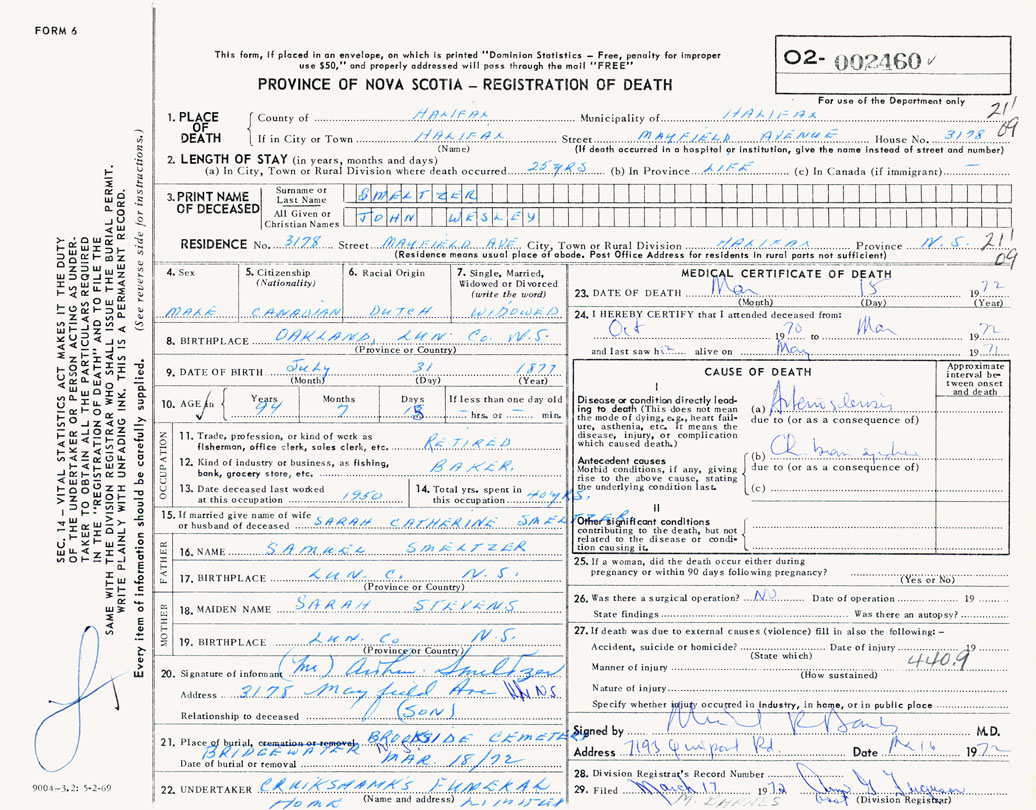 FORM 6
This form, if placed in an envelope, on which is printed "Dominion Statistics – Free, penalty for improper
use $50," and properly addressed will pass through the mail "FREE"
PROVINCE OF NOVA SCOTIA – REGISTRATION OF DEATH
O2- 002460
For use of the Department only
21'
09
1. PLACE OF DEATH
County of HALIFAX Municipality of HALIFAX
If in City or Town HALIFAX Street MAYFIELD AVENUE House No. 3178
(Name) (If death occurred in a hospital or institution, give the name instead of street and number)
2. LENGTH OF STAY (in years, months and days)
(a) In City, Town or Rural Division where death occurred 25 YRS (b) In Province LIFE (c) In Canada (if immigrant) —
3. PRINT NAME OF DECEASED
Surname or Last Name SMELTZER
All Given or Christian Names JOHN WESLEY
RESIDENCE No. 3178 Street MAYFIELD AVE City, Town or Rural Division HALIFAX Province N.S. 21'
09
(Residence means usual place of abode. Post Office Address for residents in rural parts not sufficient)
4. Sex
MALE
5. Citizenship
(Nationality)
CANADIAN
6. Racial Origin
DUTCH
7. Single, Married,
Widowed or Divorced
(write the word)
WIDOWED
8. BIRTHPLACE OAKLAND, LUN Co. N.S.
(Province or Country)
9. DATE OF BIRTH July 31 1877
(Month) (Day) (Year)
10. AGE in Years Months Days If less than one day old
94 7 15 – hrs. or – min.
OCCUPATION
11. Trade, profession, or kind of work as
fisherman, office clerk, sales clerk, etc. RETIRED
12. Kind of industry or business, as fishing,
bank, grocery store, etc. BAKER.
13. Date deceased last worked
at this occupation 1950
14. Total yrs. spent in
this occupation 40 YRS.
15. If married give name of wife
or husband of deceased SARAH CATHERINE SMELTZER
FATHER
16. NAME SAMUEL SMELTZER
17. BIRTHPLACE LUN. C. N.S.
(Province or Country)
MOTHER
18. MAIDEN NAME SARAH STEVENS
19. BIRTHPLACE LUN. Co N.S.
(Province or Country)
20. Signature of informant (Mr) Arthur Smeltzer
Address 3178 Mayfield Ave Hfx NS
Relationship to deceased (SON)
21. Place of burial, cremation or removal BROOKSIDE CEMETERY
BRIDGEWATER N.S.
Date of burial or removal MAR. 18/72
22. UNDERTAKER CRUIKSHANK'S FUNERAL
HOME LIMITED
(Name and address)
MEDICAL CERTIFICATE OF DEATH
23. DATE OF DEATH Mar 15 1972
(Month) (Day) (Year)
24. I HEREBY CERTIFY that I attended deceased from:
Oct 1970 to Mar 1972
and last saw him alive on May 1971
CAUSE OF DEATH
Approximate
interval be-
tween onset
and death
I
Disease or condition directly lead-
ing to death (This does not mean
the mode of dying, e.g., heart fail-
ure, asthenia, etc. It means the
disease, injury, or complication
which caused death.)
(a) Arteriosclerosis
due to (or as a consequence of)
Antecedent causes
Morbid conditions, if any, giving
rise to the above cause, stating
the underlying condition last.
(b) Ch brain syndrome
due to (or as a consequence of)
(c)
II
Other significant conditions
contributing to the death, but not
related to the disease or condi-
tion causing it.
25. If a woman, did the death occur either during
pregnancy or within 90 days following pregnancy?
(Yes or No)
26. Was there a surgical operation? NO Date of operation 19
State findings Was there an autopsy?
27. If death was due to external causes (violence) fill in also the following: –
Accident, suicide or homicide? Date of injury 19
(State which)
440.9
Manner of injury
(How sustained)
Nature of injury
Specify whether injury occurred in industry, in home, or in public place
Signed by M.D.
Address 7193 Quinpool Rd. Date Mar 16 1972
28. Division Registrar's Record Number
29. Filed March 17 1972
M. BARNES
(Division Registrar)
SEC. 14 – VITAL STATISTICS ACT MAKES IT THE DUTY
OF THE UNDERTAKER OR PERSON ACTING AS UNDER-
TAKER TO OBTAIN ALL THE PARTICULARS REQUIRED
IN THE "REGISTRATION OF DEATH" AND TO FILE THE
SAME WITH THE DIVISION REGISTRAR WHO SHALL ISSUE THE BURIAL PERMIT.
WRITE PLAINLY WITH UNFADING INK. THIS IS A PERMANENT RECORD.
Every item of information should be carefully supplied. (See reverse side for instructions.)
9004-3.2: 5-2-69